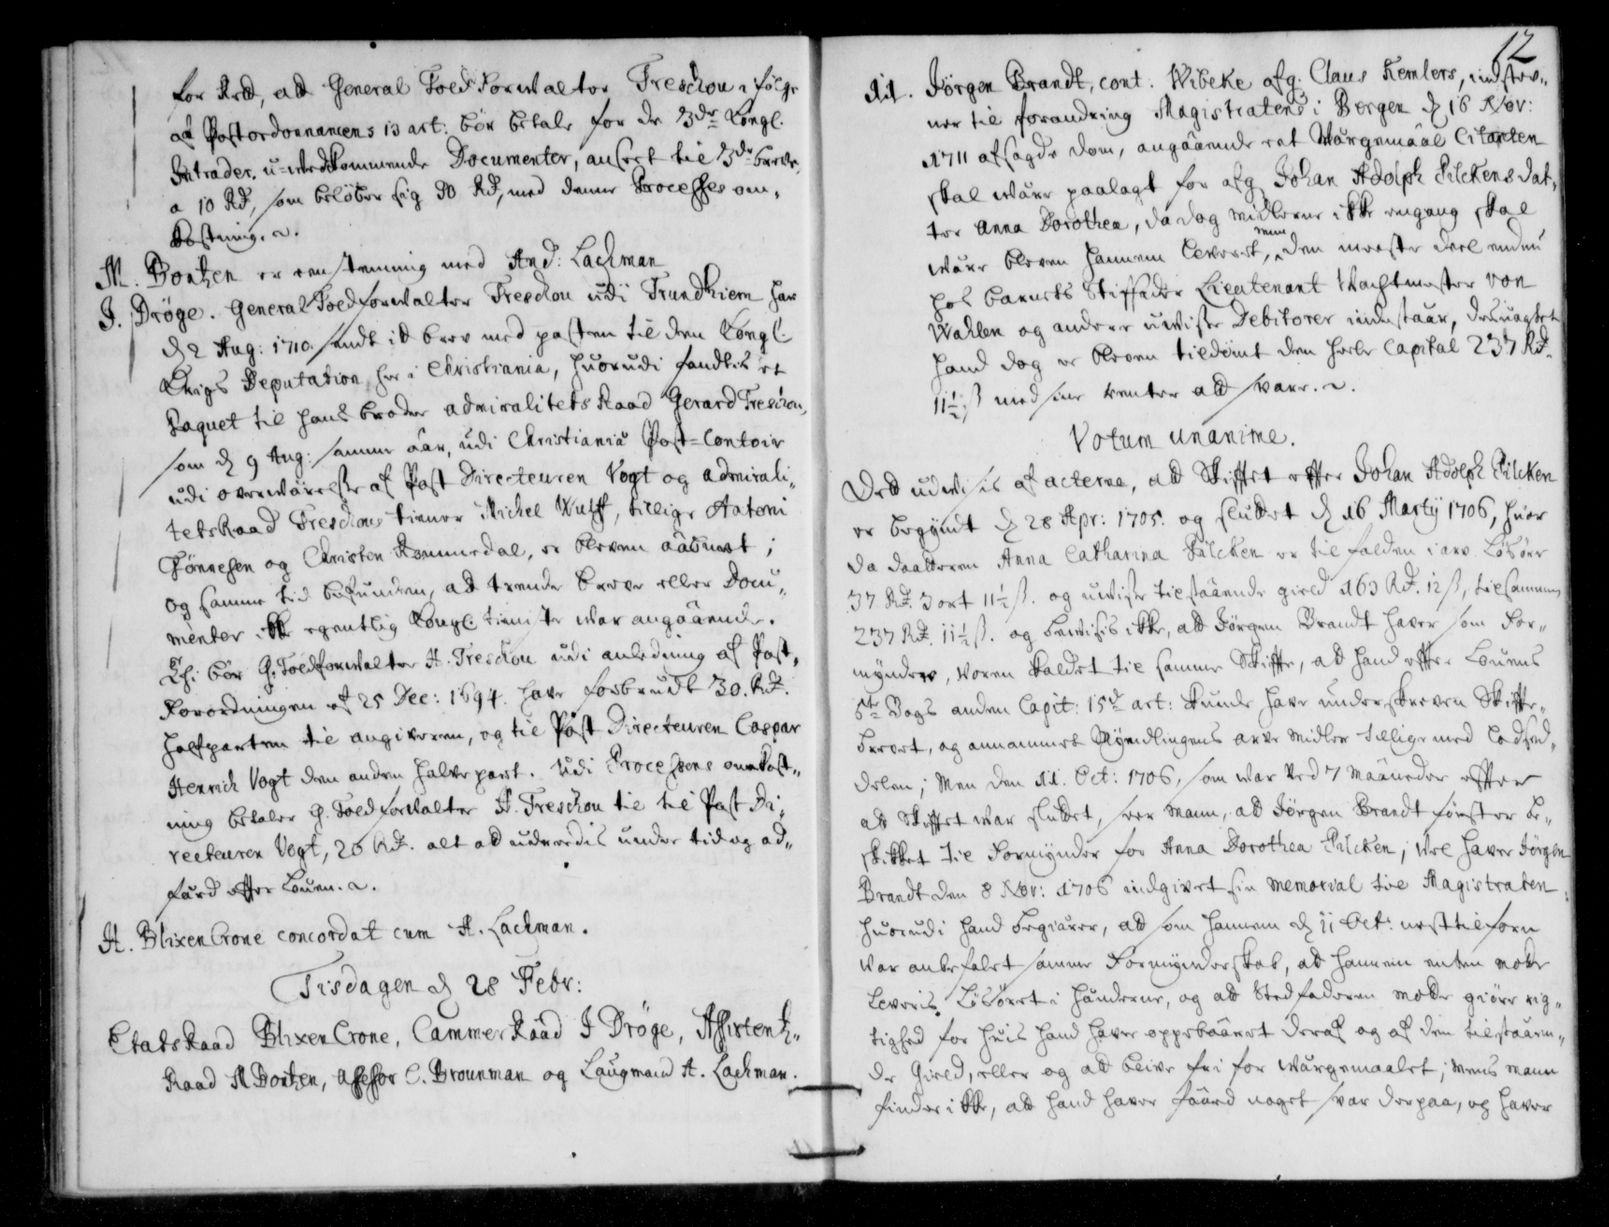 for Ræd, att General Toed Forwalter Treschou i følge
af Postordonnancens 13 art: bør betale for de 3de Kongl.
Intrader, u-wedkommende Documenter, ansett til 3de brewe,
a 10 Rd, som beløber sig 30 Rd, med denne Processes om,
kostning. etc.
M. Bontzen er eenstemmig med And: Lachman
J. Dröge. General Toedforwalter Treschou udi Trundhiem har
d 2 Aug: 1710. sendt it brev med posten til den Kongl.
Krigs Deputation her i Christiania, huorudi fandtis et
Paquet til hans broder admiralitets Raad Gerard Treschou,
som d 9 Aug: samme aar, udi Christiania Post-Contoir
udi overwærelse af Post Directeuren Vogt og admirali,
tets Raad Treschous tiener Michel Wulff, tillige Antoni
Tønnesen og Christen Rommedal, er bleven aabnet;
og samme tid befunden, at trende breve eller Docu,
menter ikke egentlig Kongl: tieniste war angaaende.
Thi bør G. Toedforwalter H. Treschou udi anledning af Post,
Forordningen af 25 Dec: 1694. have forbrudt 30. Rd.
halfparten til angiveren, og til Post Directeuren Caspar
Henrich Vogt den anden halvepart. Udi Processens omkost,
ning betaler G. Toedforwalter H. Treschou til Post Di,
recteuren Vogt, 20 Rd. alt at udreedis under tid og ad,
færd effter Louen. etc.
H. BlixenCrone concordat cum H. Lachman.
Tisdagen d 28 Febr:
EtatsRaad BlixenCrone, CammerRaad J Dröge, Assistentz,
Raad M Bontzen, assessor C. Brounman og Laugmand H. Lachman.
12
11. Jørgen Brandt, cont. Wibeke afg. Claus Kemlers, indstev,
ner til forandring Magistratens i Bergen d 16 Nov:
1711 afsagde dom, angaaende et Wærgemaal Citanten
skal være paalagt for afg Johan Adolph Pilckens dat,
ter Anna Dorothea, da dog midlerne ikke engang skal
være bleven hannem leveret, men den meeste deel endnu
hos barnets Stiffader Lieutenant Wachtmester von
Wahlen og andere uwisse Debitorer indestaar, desuagtet
hand dog er bleven tildømt den heele Capital 237 Rd.
11½ ß med sine renter att svare. etc.
Votum unanime.
Det udwisis af acterne, att Skifftet effter Johan Adolph Pilcken
er begyndt d 28 Apr: 1705. og sluttet d 16 Marty 1706, huor
da daatteren Anna Catharina Pilcken er tilfalden i arv Løsøre
37. Rd. 3 ort 11½ ß. og uwisse tilstaaende gield 163 Rd. 12 ß, tilsammen
237 Rd. 11½ ß. og bewisis ikke, att Jørgen Brandt haver som For,
mynder, voren kaldet til samme Skiffte, att hand effter Louens
5te Bogs anden Capit: 15de art: kunde have underskreven Skiffte,
brevet, og annammet Myndlingens arve midler tillige med Lodsed,
delen; Men den 11. Oct: 1706, som war ved 7 Maaneder effter
att Skifftet war sluttet, seer mann, att Jørgen Brandt førster be,
skikket til Formynder for Anna Dorothea Pilcken; vel haver Jørgen
Brandt den 8 Nov: 1706 indgivet sin memorial til Magistraten,
huorudi hand begiærer, att som hannem d 11 Oct: nest tilforn
war anbefalet samme Formynderskab, att hannem enten motte
Leveris Løsøret i hænderne, og att Stedfaderen motte giøre rig,
tighed for huis hand haver oppebaaret deraf og af den tilstaaen,
de gield, eller og att blive fri for Wærgemaalet; mens mann
finder ikke, att hand haver faaed noget svar derpaa, og haver